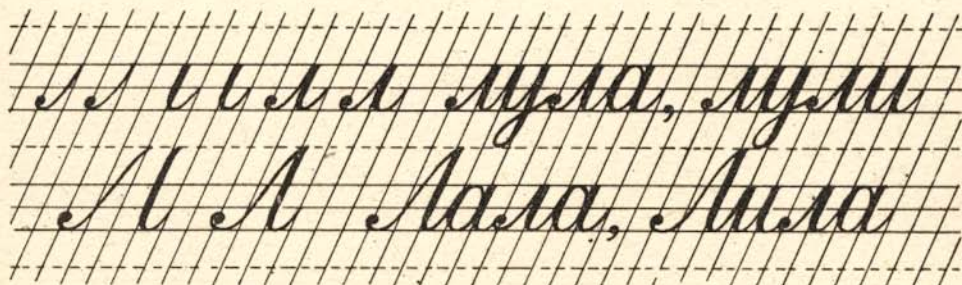 л л лула, лули
Л Лала, Лила